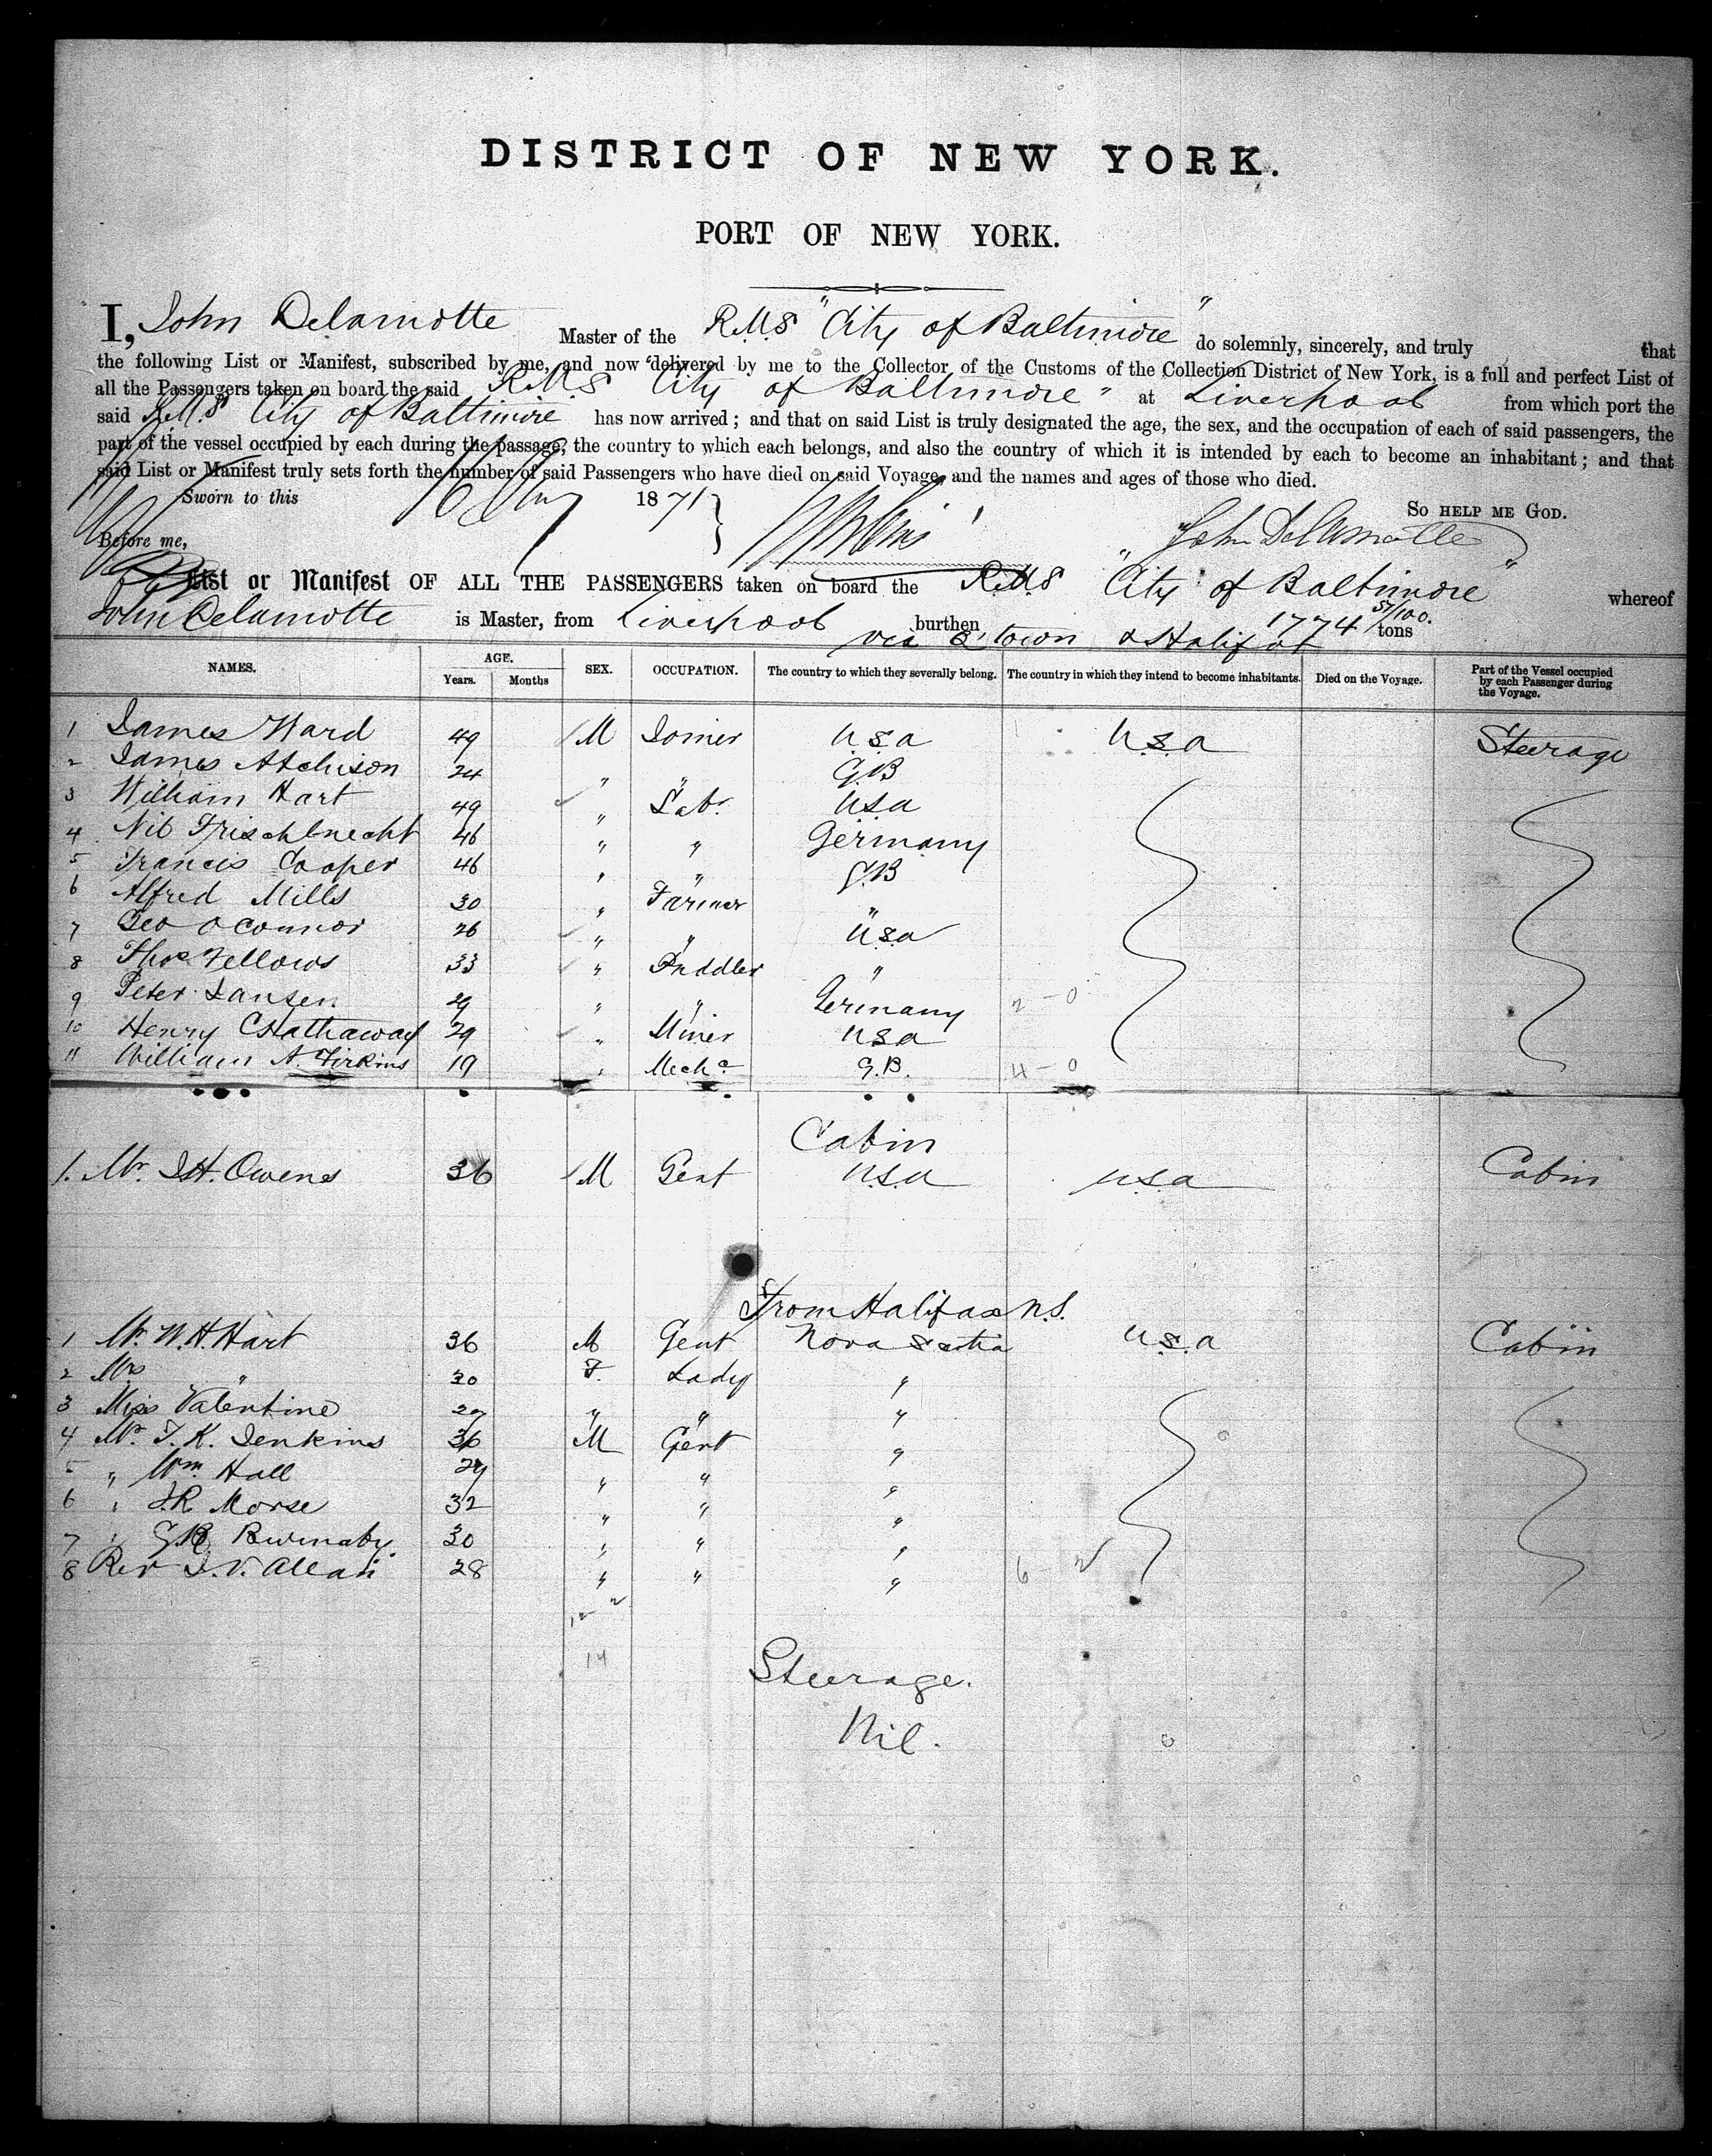 DISTRICT OF NEW YORK.
PORT OF NEW YORK.
I, John Delamotte Master of the R.M.S "City of Baltimore" do solemnly, sincerely, and truly that
the following List or Manifest, subscribed by me, and now delivered by me to the Collector of the Customs of the Collection District of New York, is a full and perfect List of
all the Passengers taken on board the said R.M.S City of Baltimore" at Liverpool from which port the
said R.M.S City of Baltimore has now arrived; and that on said List is truly designated the age, the sex, and the occupation of each of said passengers, the
part of the vessel occupied by each during the passage, the country to which each belongs, and also the country of which it is intended by each to become an inhabitant; and that
said List or Manifest truly sets forth the number of said Passengers who have died on said Voyage, and the names and ages of those who died.
Sworn to this 16 1871 So HELP ME GOD.
Before me, John Delamotte
List or Manifest OF ALL THE PASSENGERS taken on board the R.M.S "City of Baltimore" whereof
John Delamotte is Master, from Liverpool burthen 1774 57/100. tons
via Q'town & Halifax
NAMES. AGE. Years. Months SEX. OCCUPATION. The country to which they severally belong. The country in which they intend to become inhabitants. Died on the Voyage. Part of the Vessel occupied by each Passenger during the Voyage.
1 James Ward 49 M Joiner U.S.a U.S.a Steerage
2 James Atchison 24 " " G.B
3 William Hart 49 " Labr. U.S.a
4 Nib Frischknecht 46 " " Germany
5 Francis Cooper 46 " " G.B
6 Alfred Mills 30 " Farmer "
7 Geo O'Connor 26 " " U.S.a
8 Thos Fellows 33 " Puddler "
9 Peter Jansen 29 " " Germany 2-0
10 Henry C Hathaway 29 " Miner U.S.a
11 William A. Firkins 19 " Mechc G.B. 4-0
Cabin
1. Mr. J.H. Owens 36 M Gent U.S.a U.S.a Cabin
From Halifax N.S.
1 Mr. W.H. Hart 36 M Gent Nova Scotia U.S.a Cabin
2 Mrs " 30 F. Lady "
3 Miss Valentine 27 " " "
4 Mr. T.K. Jenkins 36 M Gent "
5 " Wm. Hall 29 " " "
6 " J.R. Morse 32 " " "
7 " G.B. Burnaby. 30 " " "
8 Rev J.V. Allan 28 " " " 6
12 2
14
Steerage.
Nil.